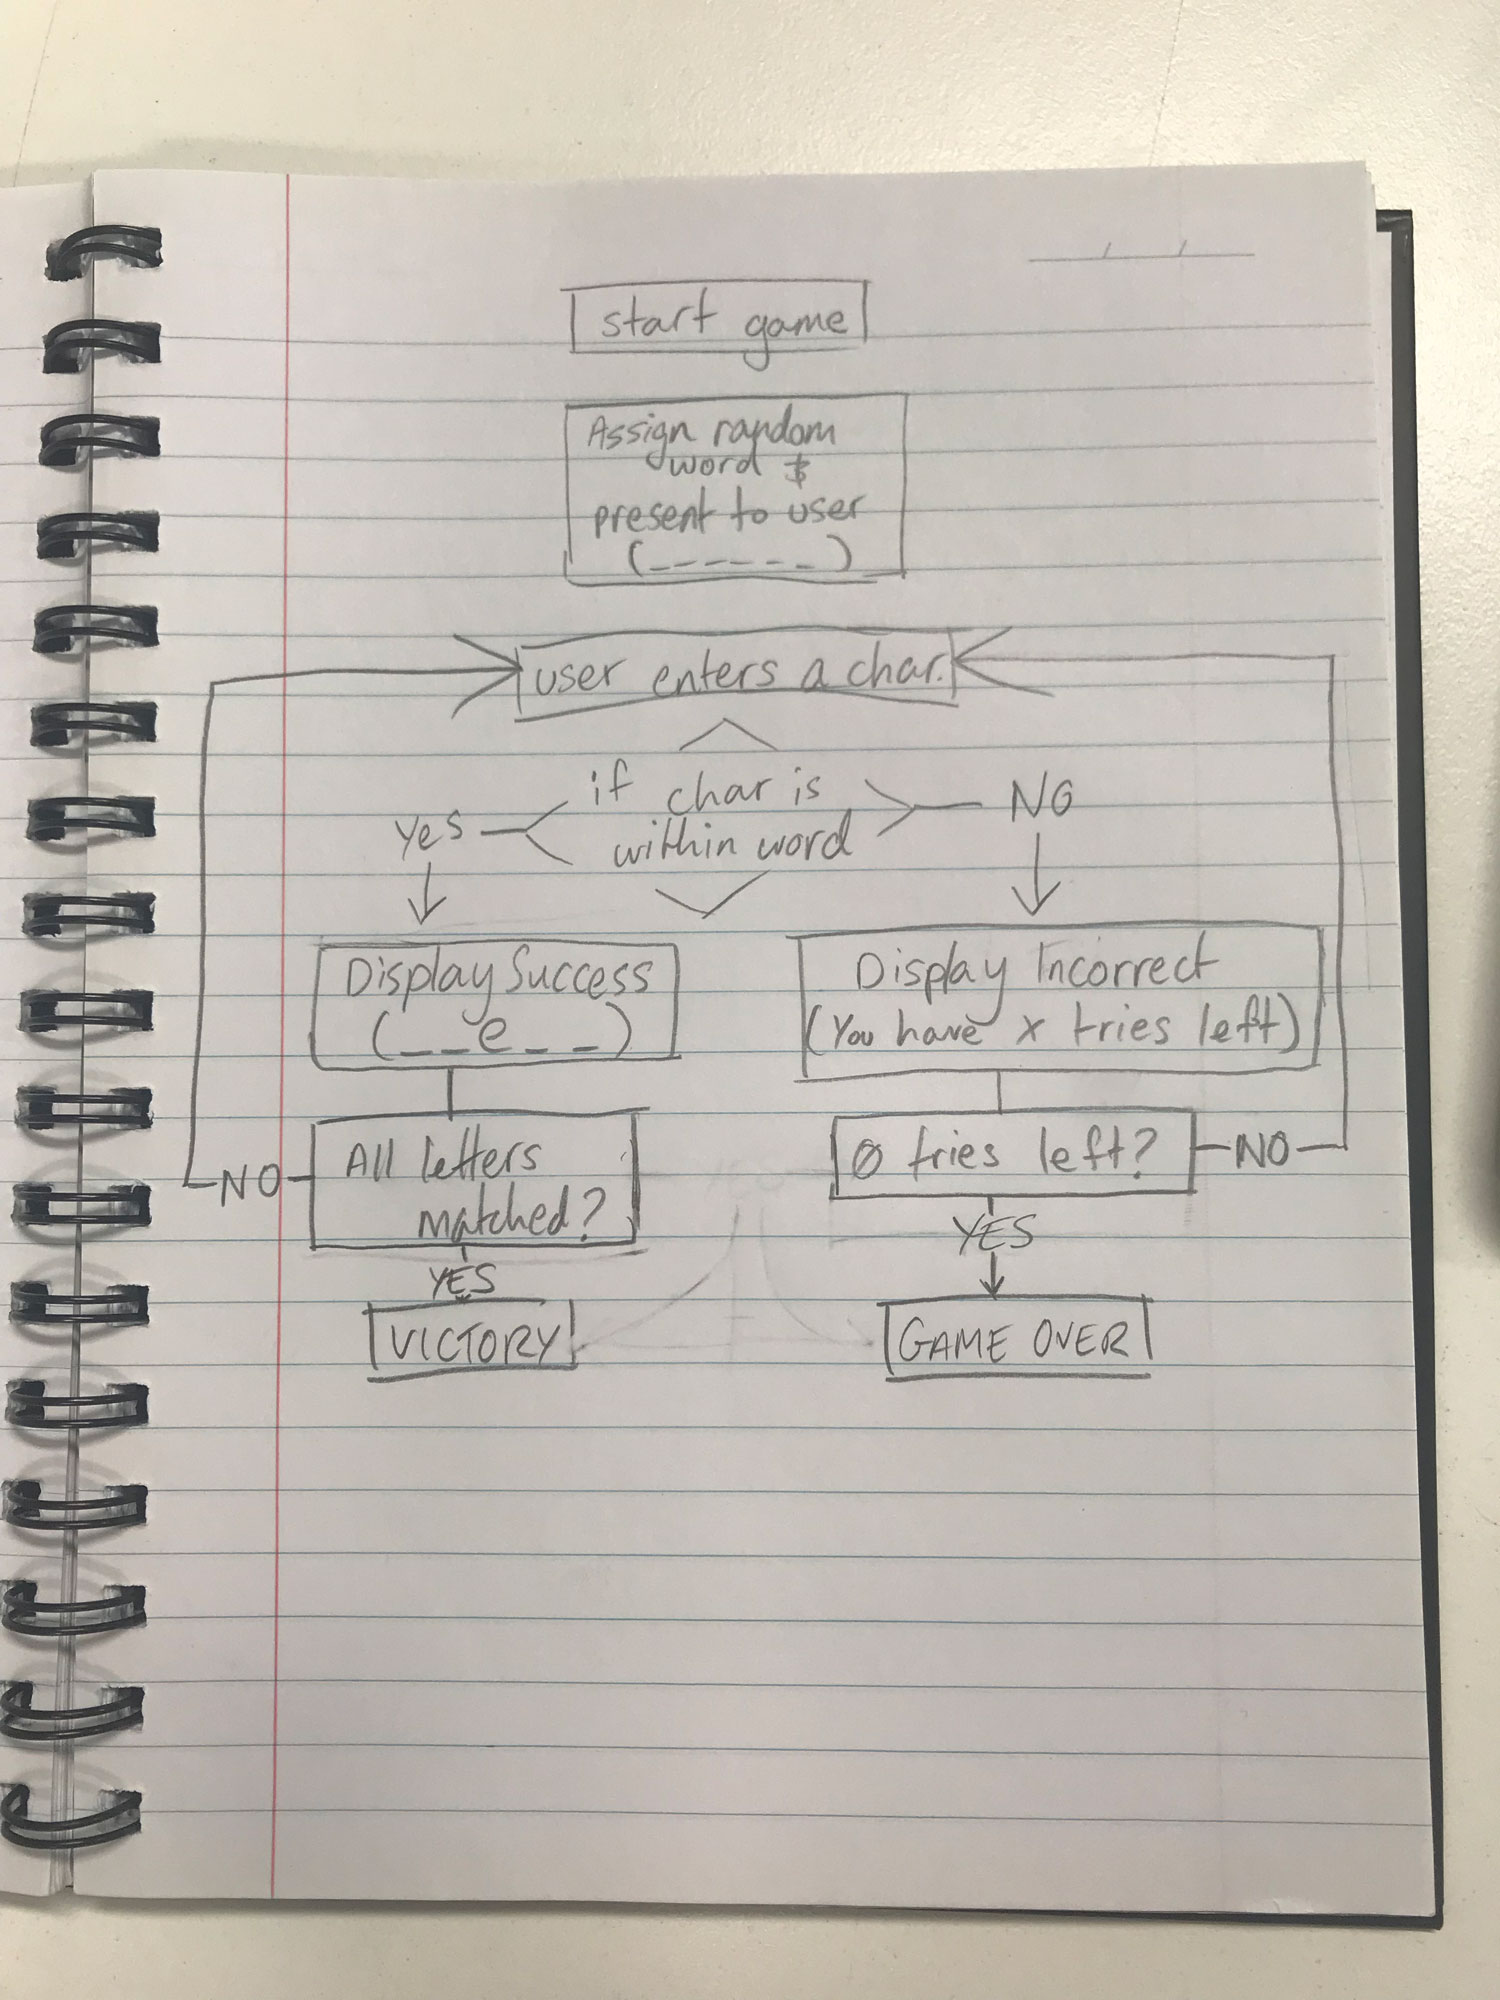 start game
Assign random
word &
present to user
(______)
user enters a char.
if char is
within word
Yes
NO
Display Success
(__e__)
Display Incorrect
(You have x tries left)
NO
All letters
matched?
0 tries left?
NO
YES
YES
VICTORY
GAME OVER